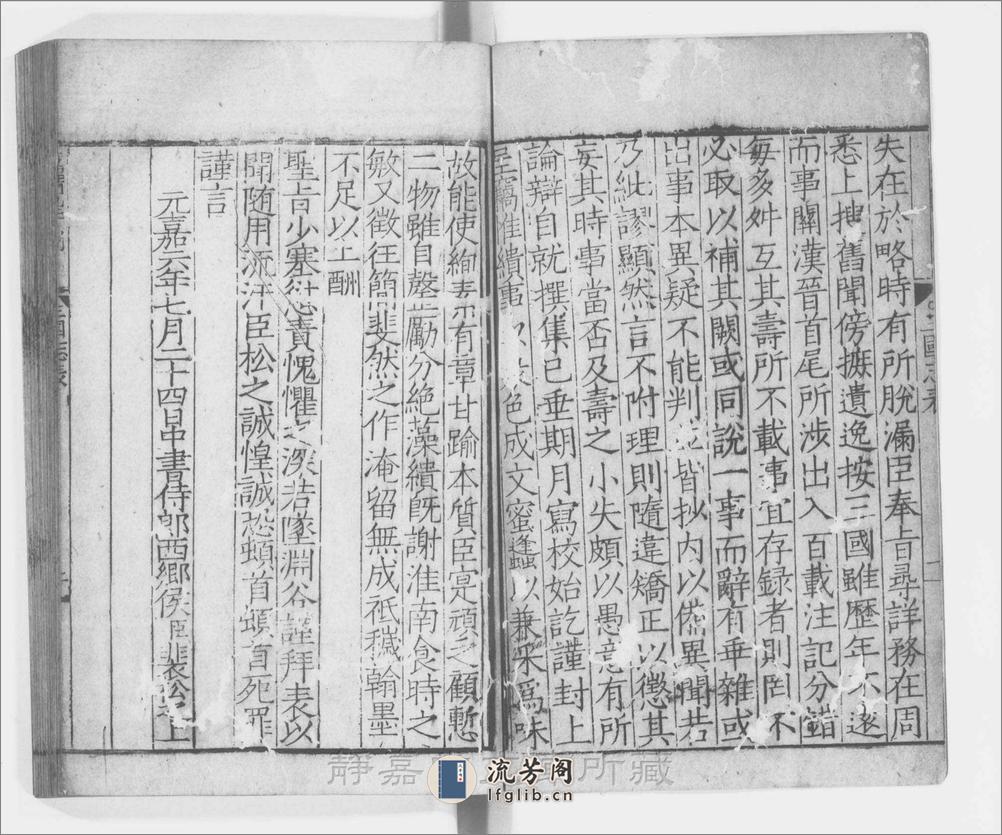 失在於略時有所脫漏臣奉旨尋詳務在周
悉上搜舊聞傍摭遺逸按三國雖歷年不遠
而事關漢晉首尾所涉出入百載注記分錯
每多舛互其壽所不載事宜存録者則罔不
必取以補其闕或同說一事而辭有乖雜或
出事本異疑不能判並皆抄内以俻異聞若
乃紕謬顯然言不附理則隨違矯正以懲其
妄其時事當否及壽之小失頗以愚意有所
論辯自就撰集已垂期月寫校始訖謹封上
呈竊惟繢事以衆色成文蜜蠭以兼采爲味
故能使絢素有章甘踰本質臣寔頑乏顧慙
二物雖自罄勵分絶藻繢旣謝淮南食時之
敏又微狂簡斐然之作淹留無成祇穢翰墨
不足以上酬
聖旨少塞愆責愧懼之深若墜淵谷謹拜表以
聞隨用流汗臣松之誠惶誠恐頓首頓首死罪
謹言
元嘉六年七月二十四日中書侍郎西鄉侯臣裴松之上
靜嘉 所藏
流芳阁
lfglib.cn